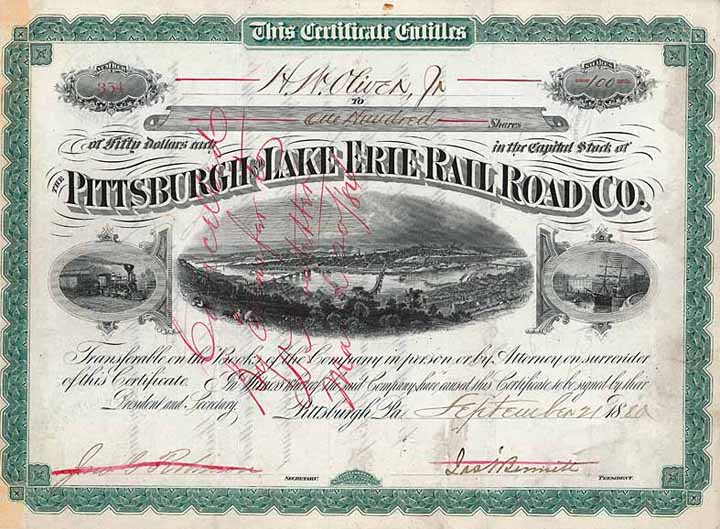 This Certificate Entitles
NUMBER
354
SHARES
100
H. W. Oliver, Jr
TO
One Hundred Shares
of Fifty Dollars each in the Capital Stock of
THE PITTSBURGH AND LAKE ERIE RAIL ROAD CO.
Transferable on the Books of the Company in person or by Attorney on surrender
of this Certificate. In Witness whereof the said Company have caused this Certificate to be signed by their
President and Secretary. Pittsburgh Pa September 21 1880
Cancelled
Jas I Bennett
SECRETARY. PRESIDENT.